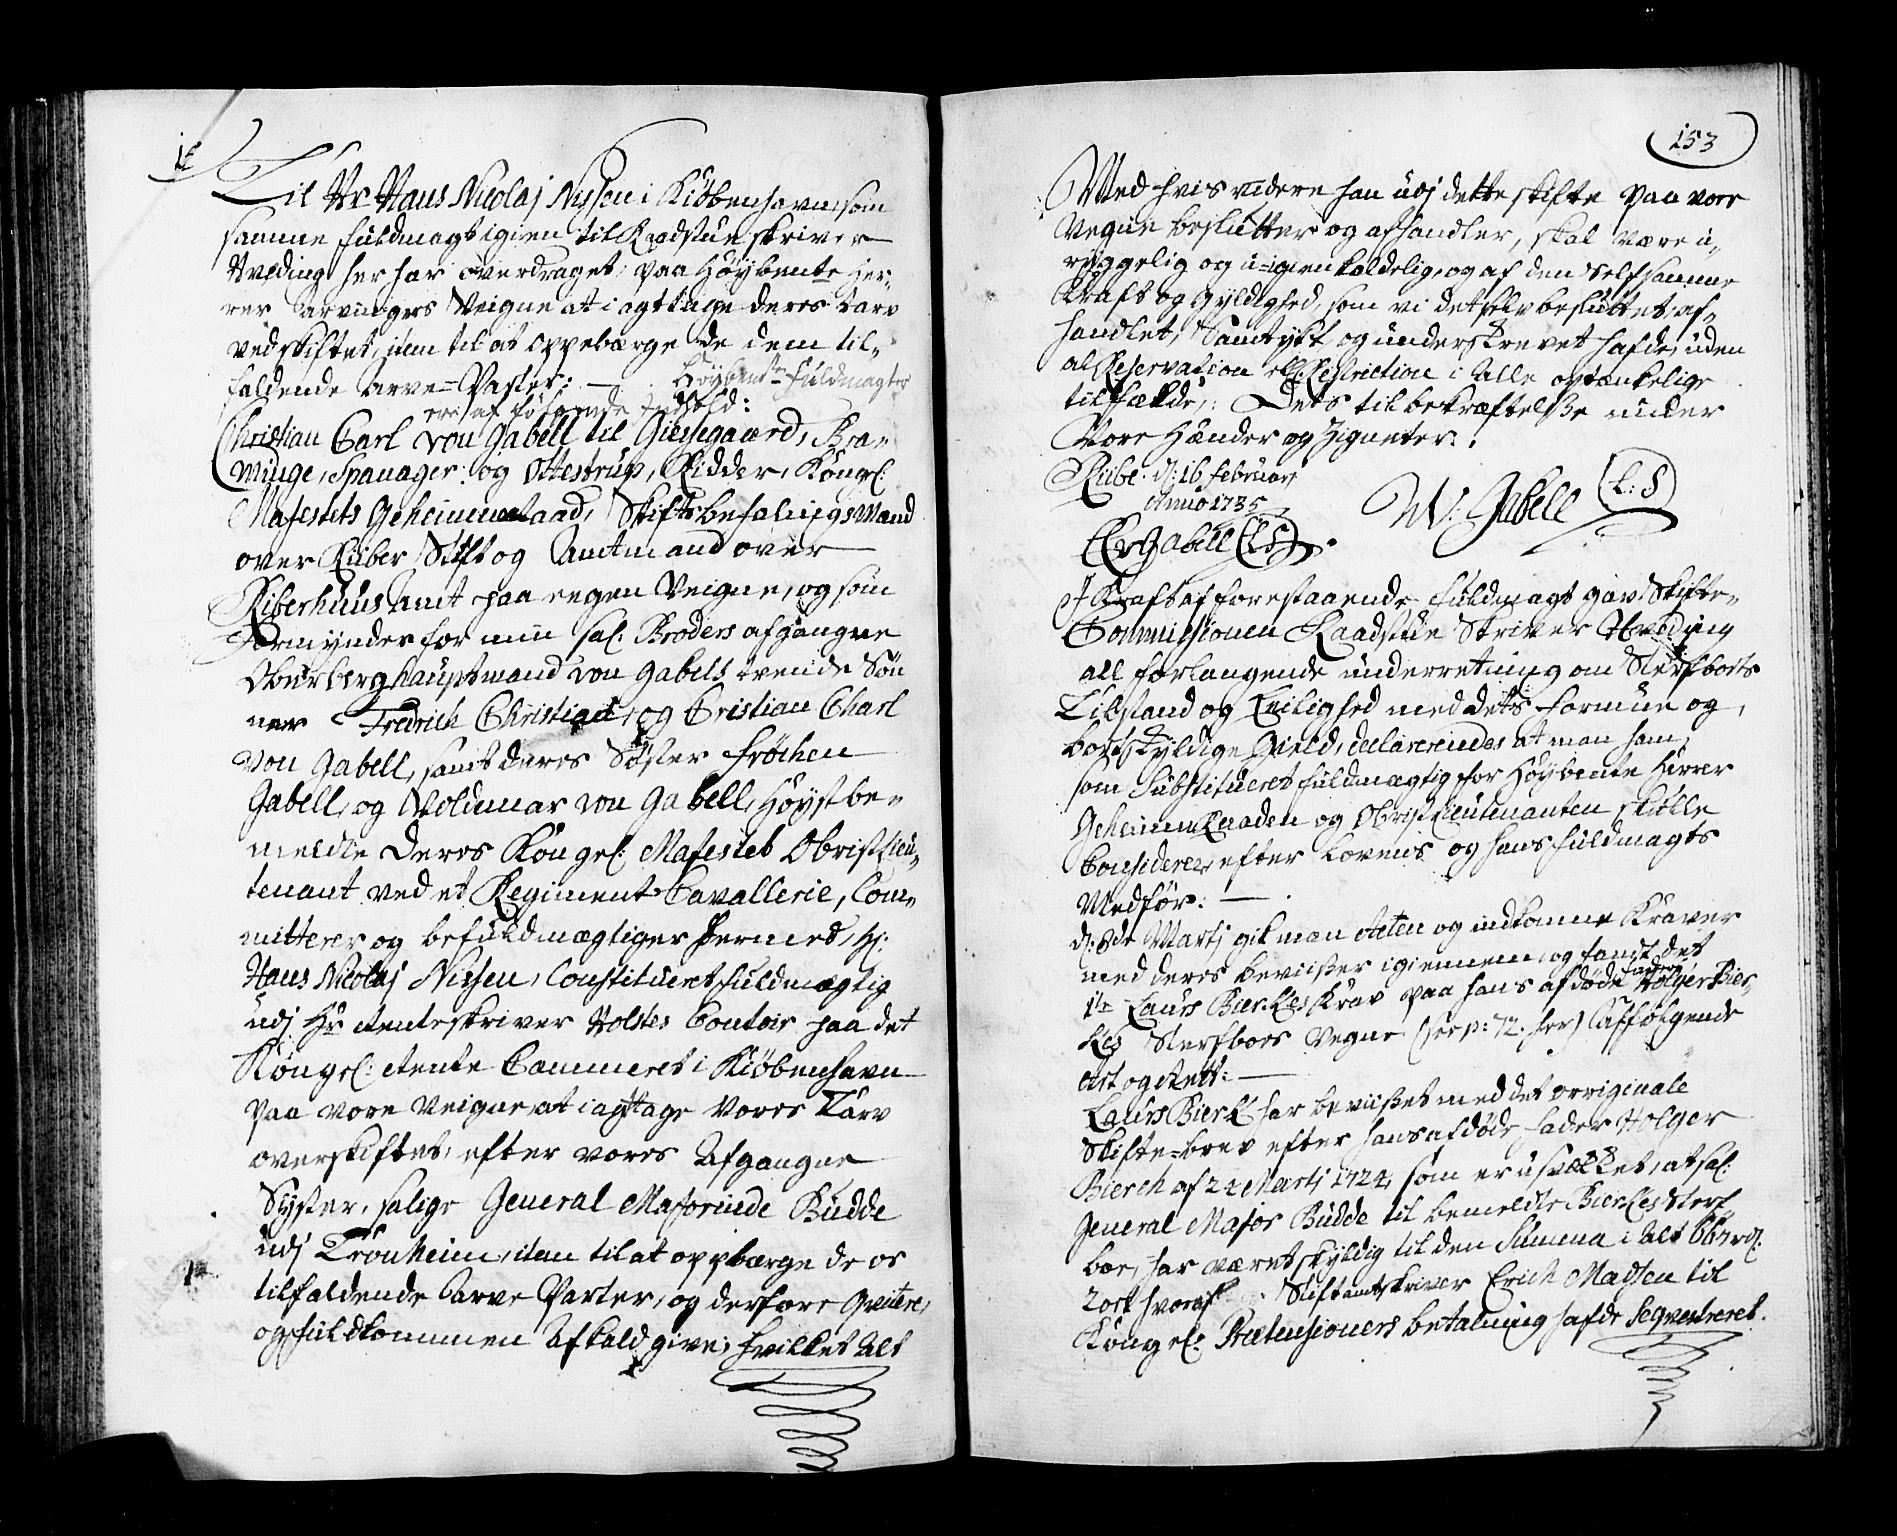 Til Hr Hans Nicolaj Nyssen i Kiöbenhavn, som
samme fuldmagt igien til Raadstue skriver
Hveding her har overdraget, paa Höybente Her-
rer Arvingers Veigne at i agttage deres tarv
ved skiftet, item til at oppebærge de dem til-
faldende Arve-Parter: — Höybente fuldmagter
ere af fölgende Indhold:
Christian Carl von Gabell til Giessegaard, Bra-
minge, Spanager og Ottestrup, Ridder, Kongel:
Majestets Geheimeraad, Stiftsbefalingsmand
over Riiber Stift og Amtmand over
Riberhuus Amt paa eegen Veigne, og som
Formynder for min sal: Broders afgangne
Oberberghauptmand von Gabels tvende Sön
ner Fredrich Christian, og Cristian Charl
von Gabell, samt deres Söster Fröchen
Gabell, og Woldemar von Gabell, Höyst be-
meldte Deres Kongel: Majestet Obristlieu-
tenant ved et Regiment Cavallerie, Com-
mitterer og befuldmægtiger hermed, Hr:
Hans Nicolaj Nissen, Constitueret fuldmægtig
udj Hr Renteskriver Holstes Contoir paa det
Kongel: Rente Cammeret i Kiöbenhavn
paa vore Veigne, at i agttage Vores Tarv
over skiftet, efter vores Afgangne
Syster, salige General Majorinde Budde
udj Tronheim, item til at oppbærge de os
tilfaldende Arve Parter, og derfore Qvitere,
og fuldkommen Afkald give; hvilket Alt
153
Med hvis videre han udj dette skifte paa vore
Vegne beslutter og afhandler, skal være u-
ryggelig og u-igienkaldelig, og af den self samme
Kraft og Gyldighed, som vi det selv besluttet, af-
handlet, Samtykt og underskrevet hafde, uden
al Reservation ell: Restriction i Alle optænkelige
tilfælde, Dets til bekræftelse under
Vore Hænder og Zigneter:
Riibe d: 16 februarj
Anno 1735
CCvGabell (LS)
W: Gabell (L:S)
I Kraft af forestaaende fuldmagt gav Skifte-
Commissionen Raadstue Skriver Hveding
all forlangende underretning om Sterfboets
Tilstand og Leilighed med dets formue og
bortskyldige Gield, declarerendes at man ham,
som Substitueret fuldmægtig for Höybente Herrer
Geheimeraaden og Obristlieutenanten skulle
Considerer, efter Lovens og hans fuldmagts
Medför: —
d: 8de Martj gik man Acten og indkomne Kraver
med deres beviiser igiennem, og fandt det
1te Laurs Bierkes Krav paa hans afdöde fader Holger Bier-
kes Sterfboes Vegne (see p: 72. her) Affölgende
Art og Rett: —
Laurs Bierk har beviiset med det orriginale
Skifte-brev efter hans afdöde fader Holger
Bierch af 24 Martj 1724, som er usvækket, at sal:
General Major Budde til bemeldte Bierkes Sterf
boe, har været skyldig til den Summa i Alt 667 rd:
2 ort hvoraf Stiftamtskriver Erich Madsen til
Kongel: Prætensioners betalning hafde Seqvestreret.